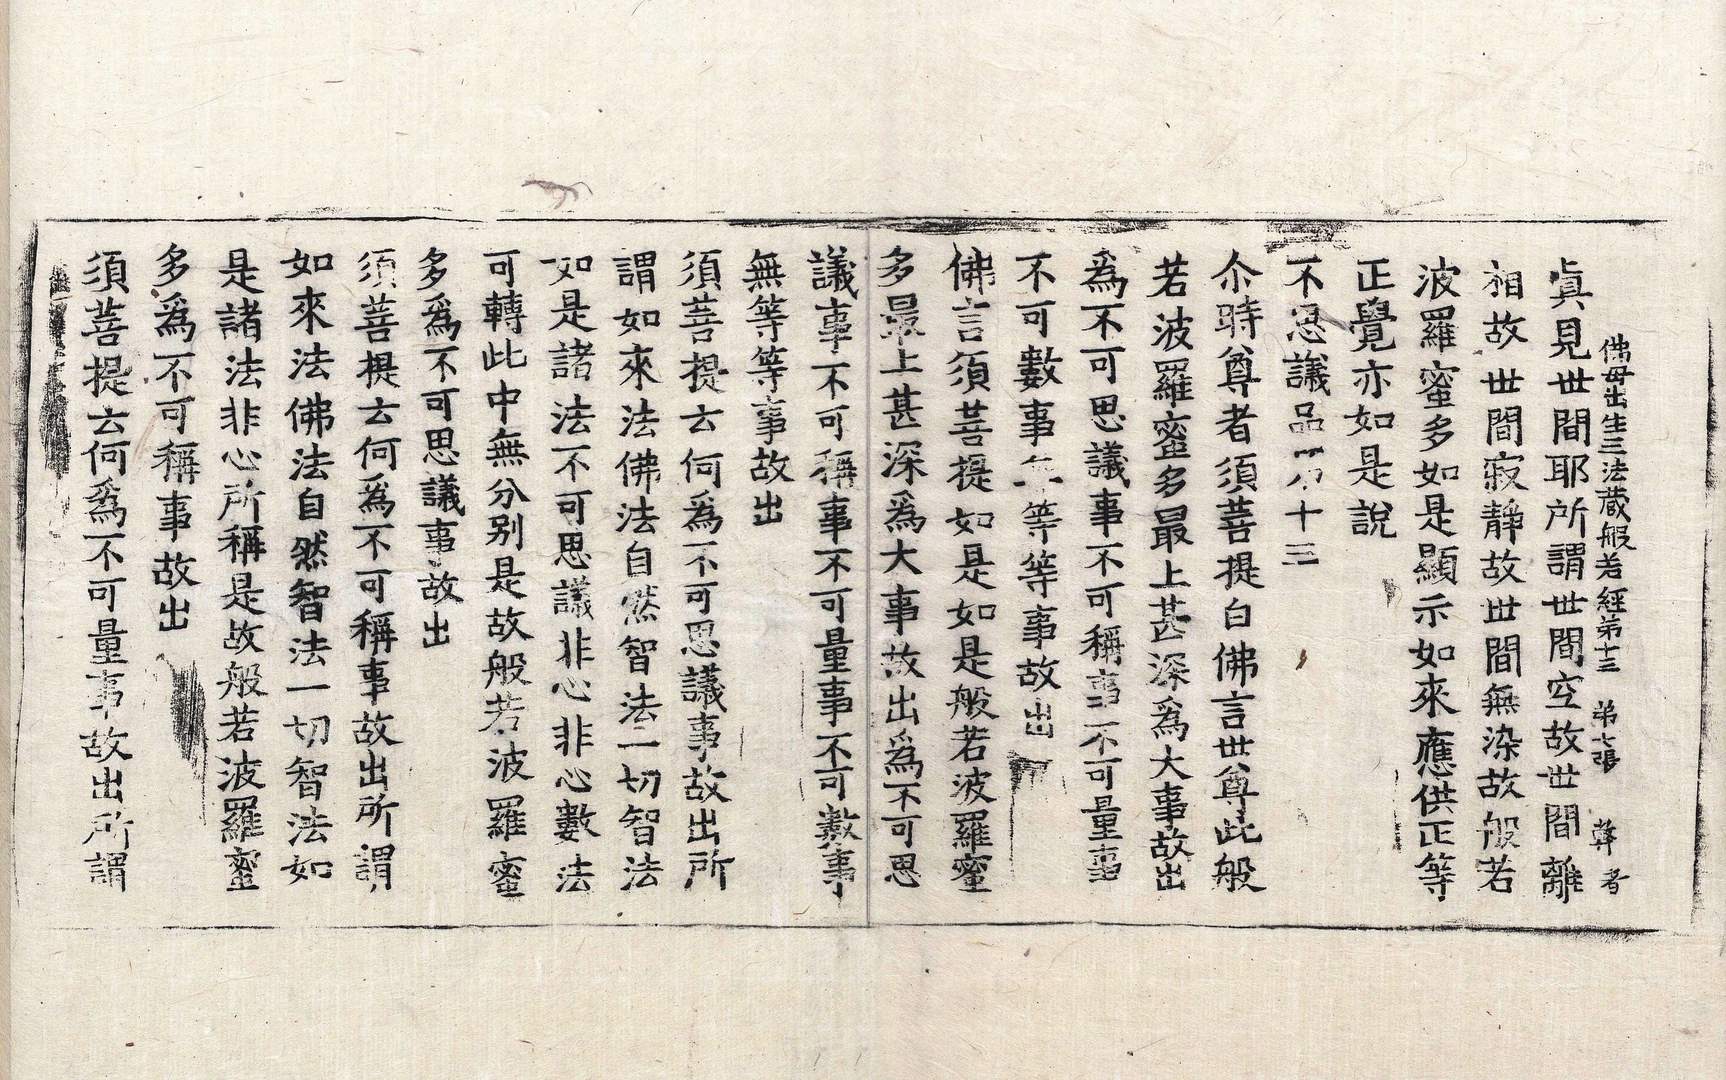 佛母出生三法藏般若經第十三 第七張
眞見世間耶所謂世間空故世間離
相故世間寂靜故世間無染故般若
波羅蜜多如是顯示如來應供正等
正覺亦如是說
不思議品第十三
尒時尊者須菩提白佛言世尊此般
若波羅蜜多最上甚深爲大事故出
爲不可思議事不可稱事不可量事
不可數事無等等事故出
佛言須菩提如是如是般若波羅蜜
多最上甚深爲大事故出爲不可思
議事不可稱事不可量事不可數事
無等等事故出
須菩提云何爲不可思議事故出所
謂如來法佛法自然智法一切智法
如是諸法不可思議非心非心數法
可轉此中無分別是故般若波羅蜜
多爲不可思議事故出
須菩提云何爲不可稱事故出所謂
如來法佛法自然智法一切智法如
是諸法非心所稱是故般若波羅蜜
多爲不可稱事故出
須菩提云何爲不可量事故出所謂